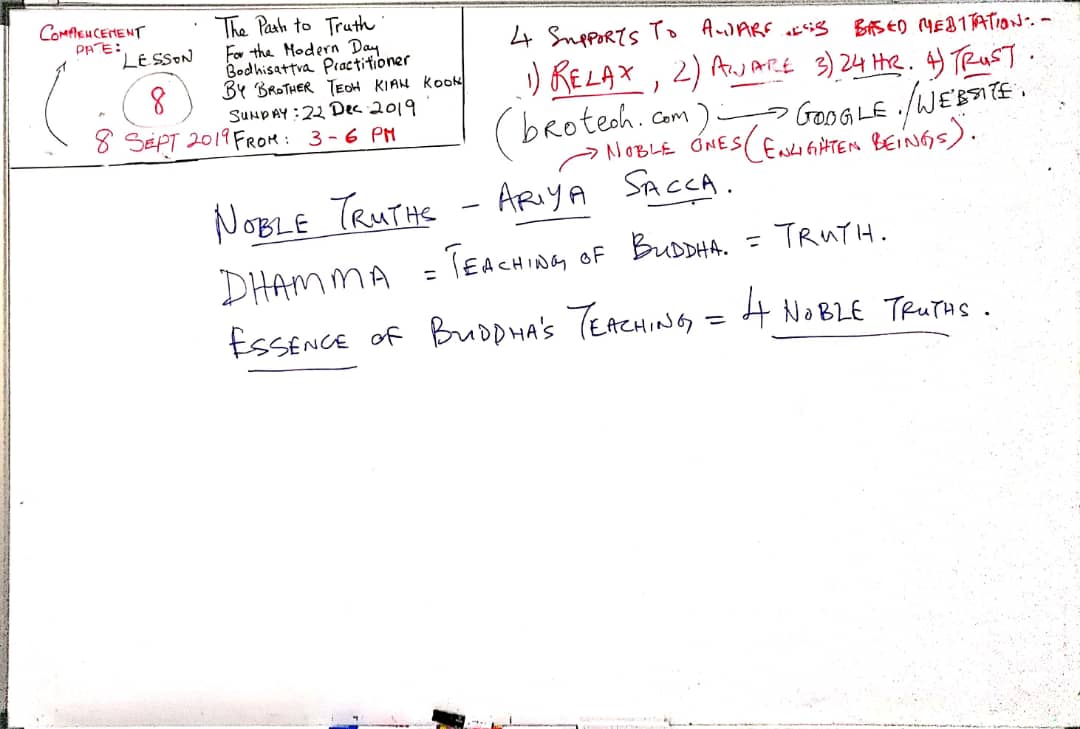 COMMENCEMENT
DATE:
LESSON
8
8 SEPT 2019
The Path to Truth
For the Modern Day
Bodhisattva Practitioner
BY BROTHER TEOH KIAN KOON
SUNDAY : 22 Dec 2019
FROM : 3 - 6 PM
4 SUPPORTS TO AWARENESS BASED MEDITATION :. -
1) RELAX , 2) AWARE 3) 24 HR. 4) TRUST .
(broteoh.com) → GOOGLE . / WEBSITE .
→ NOBLE ONES (ENLIGHTEN BEINGS).
NOBLE TRUTHS - ARIYA SACCA .
DHAMMA = TEACHING OF BUDDHA. = TRUTH.
ESSENCE OF BUDDHA'S TEACHING = 4 NOBLE TRUTHS .